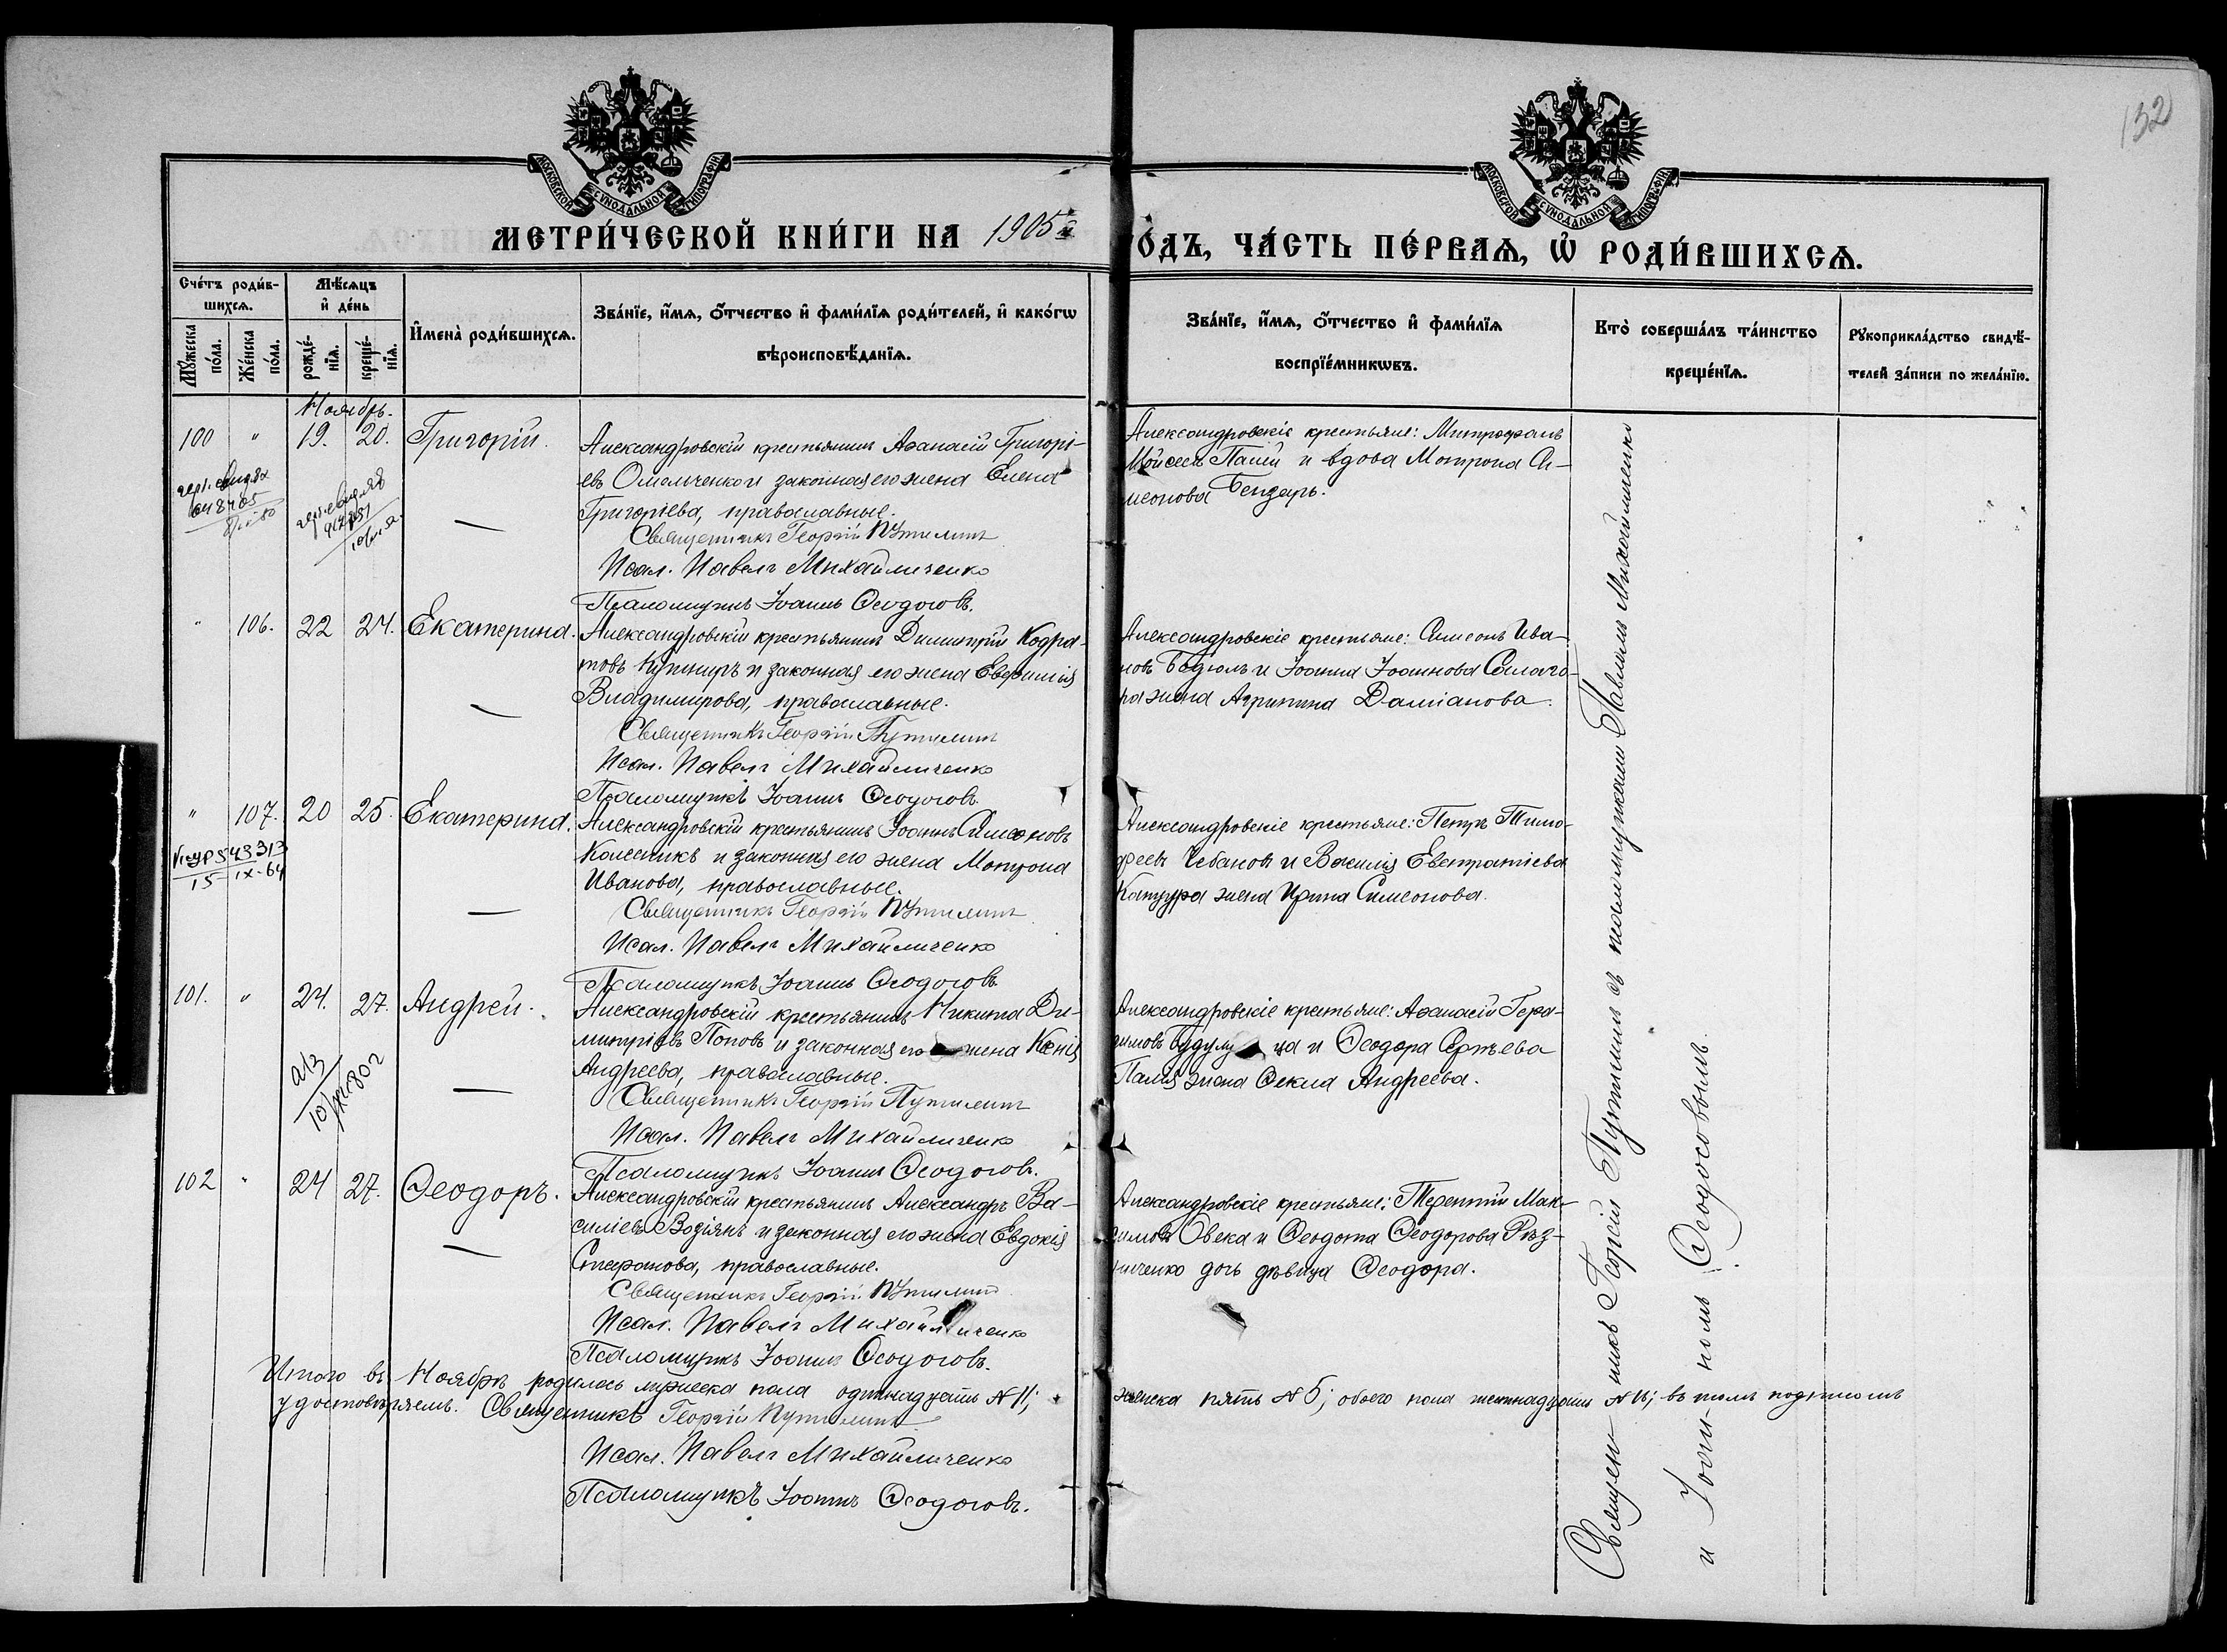 132
МОСКОВСКОЙ СУНОДАЛЬНОЙ ТИПОГРАФІИ
МОСКОВСКОЙ СУНОДАЛЬНОЙ ТИПОГРАФІИ
МЕТРИ́ЧЕСКОЙ КНИ́ГИ НА 1905й
ГО́ДЪ, ЧА́СТЬ ПЕ́РВАѦ, Ѡ РОДИ́ВШИХСѦ.
Сче́тъ роди́в-
шихсѧ.
Мꙋ́жеска
по́ла.
Же́нска
по́ла.
Мѣ́сѧцъ
и де́нь
рожде́-
нїѧ.
креще́-
нїѧ.
И҆мена̀ роди́вшихсѧ.
Зва́нїе, и҆́мѧ, ѻ҆́тчество и҆ фами́лїѧ роди́телей, и҆ како́гѡ
вѣроисповѣ́данїѧ.
Зва́нїе, и҆́мѧ, ѻ҆́тчество и҆ фами́лїѧ
воспрїе́мникѡвъ.
Кто̀ соверша́лъ та́инство
креще́нїѧ.
Рꙋкоприкла́дство свидѣ́-
телей за́писи по жела́нїю.
Ноябрь.
100 " 19. 20. Григорій.
Александровскій крестьянинъ Аѳанасій Григорі-
евъ Омельченко и законная его жена Елена
Григоріева, православные.
Священникъ Георгій Путилинъ
Псал. Павелъ Михайличенко
Псаломщикъ Іоаннъ Ѳеодосовъ.
Александровскіе крестьяне: Митрофанъ
Мойсеевъ Палій и вдова Матрона Си-
меонова Бендарь.
" 106. 22 24. Екатерина.
Александровскій крестьянинъ Димитрій Кодра-
товъ Кушниръ и законная его жена Евфимія
Владимирова, православные.
Священникъ Георгій Путилинъ
Псал. Павелъ Михайличенко
Псаломщикъ Іоаннъ Ѳеодосовъ.
Александровскіе крестьяне: Симеонъ Ива-
новъ Бодюлъ и Іоанна Іоаннова
жена Агрипина Даміанова.
" 107. 20 25. Екатерина.
43313
15-IX-64
Александровскій крестьянинъ Іоаннъ Симеоновъ
Колесникъ и законная его жена Матрона
Иванова, православные.
Священникъ Георгій Путилинъ
Псал. Павелъ Михайличенко
Псаломщикъ Іоаннъ Ѳеодосовъ.
Александровскіе крестьяне: Петръ Тимо-
феевъ Чебановъ и Василія Евстратіева
Кантура жена Ирина Симеонова.
101. " 24. 27. Андрей.
Александровскій крестьянинъ Никита Ди-
митріевъ Поповъ и законная его жена Ксенія
Андреева, православные.
Священникъ Георгій Путилинъ
Псал. Павелъ Михайличенко
Псаломщикъ Іоаннъ Ѳеодосовъ.
Александровскіе крестьяне: Аѳанасій Гера-
симовъ и Ѳеодора Сергѣева
Палія жена Ѳекла Андреева.
102 " 24 27. Ѳеодоръ.
Александровскій крестьянинъ Александръ Ва-
силіевъ Водіянъ и законная его жена Евдокія
Стефанова, православные.
Священникъ Георгій Путилинъ
Псал. Павелъ Михайличенко
Псаломщикъ Іоаннъ Ѳеодосовъ.
Александровскіе крестьяне: Терентій Мак-
симовъ Овека и Ѳеодота Ѳеодорова Рѣз-
ниченко дочь дѣвица Ѳеодора.
Священникъ Георгій Путилинъ съ псаломщиками Павломъ Михайличенко
и Іоанномъ Ѳеодосовымъ.
Итого въ Ноябрѣ родилось мужеска пола одиннадцать №11; женска пять №5; обоего пола шестнадцать №16; въ томъ подписомъ
удостовѣряемъ. Священникъ Георгій Путилинъ
Псал. Павелъ Михайличенко
Псаломщикъ Іоаннъ Ѳеодосовъ.